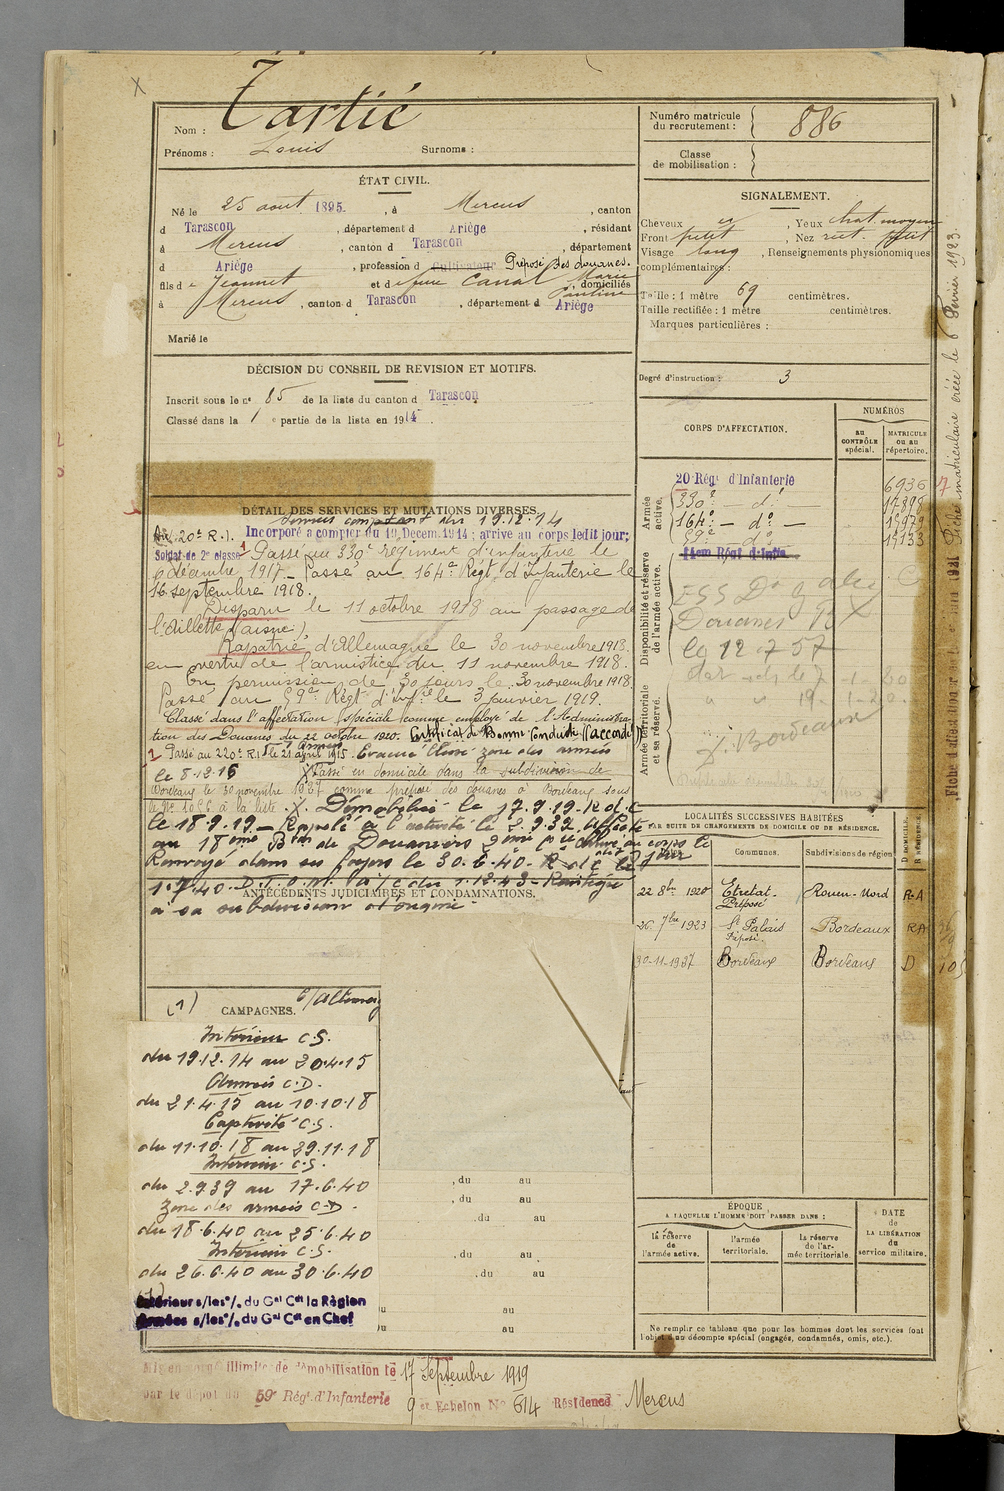 X
Nom : Tartié
Prénoms : Louis Surnoms :
ÉTAT CIVIL.
Né le 25 aout 1895. , à Mercus , canton
d Tarascon , département d Ariège , résidant
à Mercus , canton d Tarascon , département
d Ariège , profession d Cultivateur Préposé des douanes.
fils de Jeannet et de feue Canal Marie Pauline , domiciliés
à Mercus , canton d Tarascon , département d Ariège
Marié le
DÉCISION DU CONSEIL DE RÉVISION ET MOTIFS.
Inscrit sous le n° 85 de la liste du canton d Tarascon
Classé dans la 1 e partie de la liste en 1914 .
DÉTAIL DES SERVICES ET MUTATIONS DIVERSES.
Services comptant du 19.12.14
20e R.I. Incorporé a compter du 19 Decem. 1914 ; arrive au corps ledit jour;
Soldat de 2e classe 1 Passé au 330e régiment d'infanterie le
6 décembre 1917. Passé au 164e Régt d'Infanterie le
16 septembre 1918.
Disparu le 11 octobre 1918 au passage de
l'Aillette (aisne)
Rapatrié d'Allemagne le 30 novembre 1918
en vertu de l'armistice du 11 novembre 1918.
En permission de 30 jours le 30 novembre 1918
Passé au 59e Régt d'Infie le 3 janvier 1919.
Classé dans l'affectation spéciale comme employé de l'Administra-
tion des Douanes du 22 octobre 1920. Certificat de Bonne Conduite "accordé"
1 Passé au 220e R.I. le 21 avril 1915. Evacué zone des armées
le 8-12-16 X Passé en domicile dans la subdivision de
Bordeaux le 30 novembre 1937 comme préposé des douanes à Bordeaux sous
à la liste . X. Démobilisé le 17.9.19. R.d.c
le 18.9.19 - Rappelé à l'activité le 2.9.39. Affecté
au 18ème Btn de Douaniers au corps le
Renvoyé dans ses foyers le 30.6.40. R.d.c le
1.7.40. D.T.O.M. a/c du 1.12.43 - Réintégré
a sa subdivision d'origine
ANTÉCÉDENTS JUDICIAIRES ET CONDAMNATIONS.
(1) CAMPAGNES. c/ Allemag
Intérieur C.S.
du 19.12.14 au 20.4.15
Armées C.D.
du 21.4.15 au 10.10.18
Captivité C.S.
du 11.10.18 au 29.11.18
Intérieur C.S.
du 2.9.39 au 17.6.40
Zone des armées C.D.
du 18.6.40 au 25.6.40
Intérieur C.S.
du 26.6.40 au 30.6.40
(1)
Intérieur s/les o/. du Gal Cdt la Région
Armées s/les o/. du Gal Cdt en Chef
, du au
, du au
, du au
, du au
, du au
du au
du au
Mis en congé illimité de démobilisation le 17 Septembre 1919
par le dépôt du 59e Régt. d'Infanterie
9 er Echelon No 614 Résidence Mercus
Numéro matricule du recrutement : 886
Classe de mobilisation :
SIGNALEMENT.
Cheveux , Yeux chat. moyen
Front petit , Nez rect. petit
Visage long , Renseignements physionomiques
complémentaires :
Taille : 1 mètre 69 centimètres.
Taille rectifiée : 1 mètre centimètres.
Marques particulières :
Degré d'instruction : 3
CORPS D'AFFECTATION.
NUMÉROS
AU CONTRÔLE spécial.
MATRICULE OU AU répertoire.
Armée active.
20 Régt d'Infanterie 6936
330e d°
164e - d° -
59e d° 19133
Disponibilité et réserve de l'armée active.
Douanes
Armée territoriale et sa réserve.
Bordeaux
LOCALITÉS SUCCESSIVES HABITÉES
PAR SUITE DE CHANGEMENTS DE DOMICILE OU DE RÉSIDENCE.
Dates. Communes. Subdivisions de région D DOMICILE. R RÉSIDENCE.
22 8bre 1920 Etretat. Préposé Rouen-Nord R-A
26 7bre 1923 St Palais Préposé. Bordeaux RA
30-11-1937 Bordeaux Bordeaux D
ÉPOQUE
A LAQUELLE L'HOMME DOIT PASSER DANS :
la réserve de l'armée active.
l'armée territoriale.
la réserve de l'armée territoriale.
DATE de LA LIBÉRATION du service militaire.
Ne remplir ce tableau que pour les hommes dont les services font
l'objet d'un décompte spécial (engagés, condamnés, omis, etc.).
Fiche matriculaire créée le 6 Février 1923.